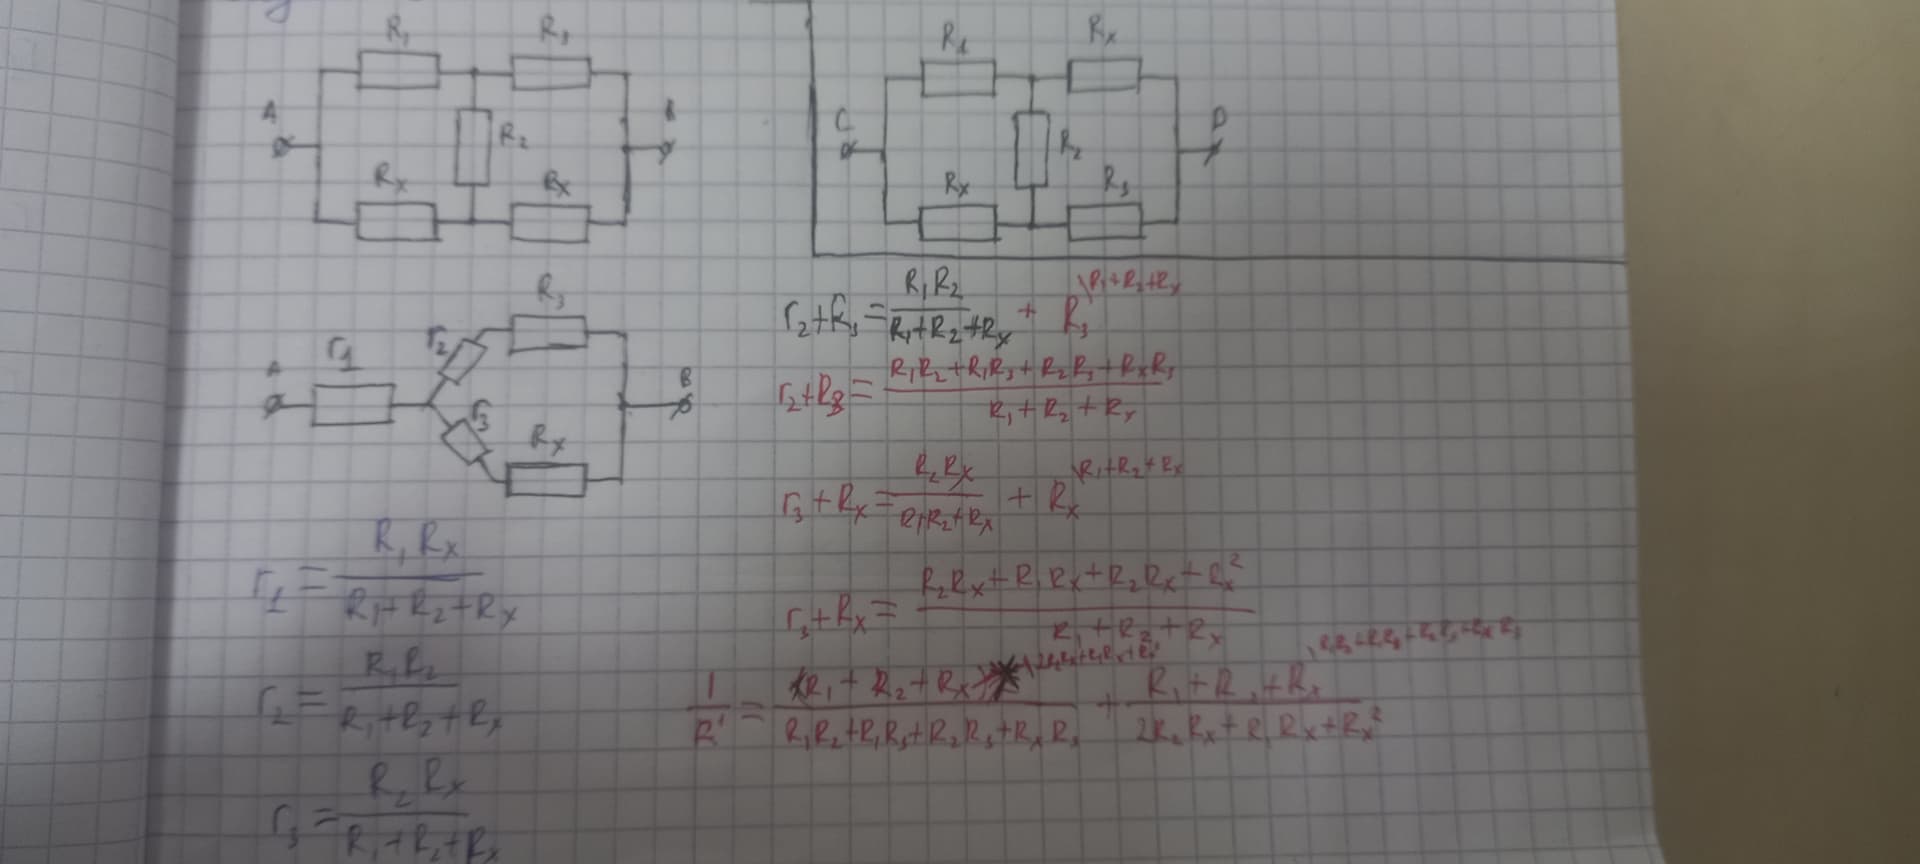 R₁ R₃
A B
R₂
Rx Rx
R₁ Rx
C D
R₂
Rx R₃
R₃
A r₁ r₂ B
r₃ Rx
r₁ = R₁Rx / R₁+R₂+Rx
r₂ = R₁R₂ / R₁+R₂+Rx
r₃ = R₂Rx / R₁+R₂+Rx
r₂+R₃ = R₁R₂ / R₁+R₂+Rx + R₃ \R₁+R₂+Rx
r₂+R₃ = R₁R₂+R₁R₃+R₂R₃+RxR₃ / R₁+R₂+Rx
r₃+Rx = R₂Rx / R₁+R₂+Rx + Rx \R₁+R₂+Rx
r₃+Rx = R₂Rx+R₁Rx+R₂Rx+Rx² / R₁+R₂+Rx
1 / R' = (R₁+R₂+Rx) \2R₂Rx+R₁Rx+Rx² / R₁R₂+R₁R₃+R₂R₃+RxR₃ + R₁+R₂+Rx \R₁R₂+R₁R₃+R₂R₃+RxR₃ / 2R₂Rx+R₁Rx+Rx²